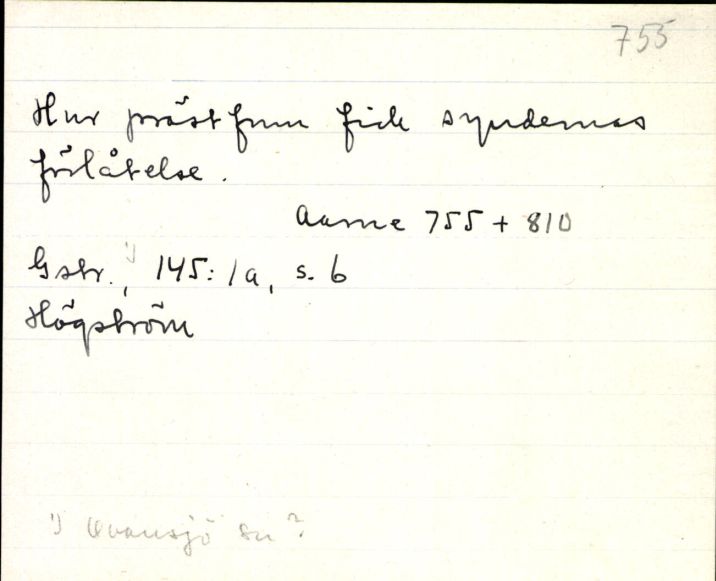 755
Hur prästfrun fick syndernas
förlåtelse.
Aarne 755 + 810
Gstr.,¹⁾ 145: 1a, s. 6
Högström
¹⁾ Ovansjö sn?